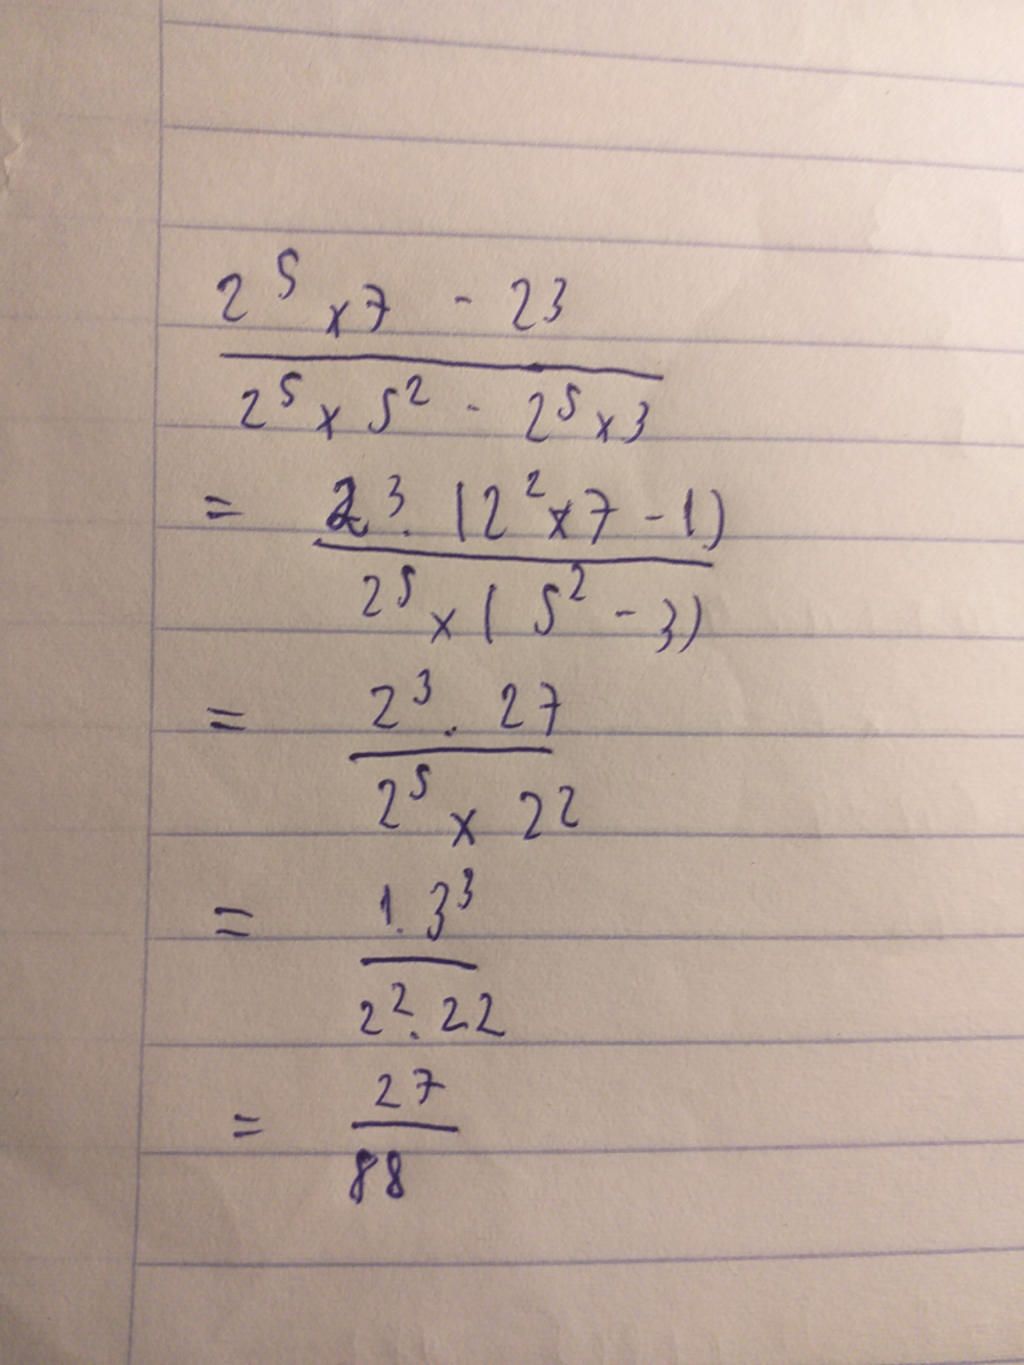 2⁵ x 7 - 23
2⁵ x 5² - 2⁵ x 3
= 2³. (2² x 7 - 1)
2⁵ x ( 5² - 3)
= 2³. 27
2⁵ x 22
= 1. 3³
2². 22
= 27
88